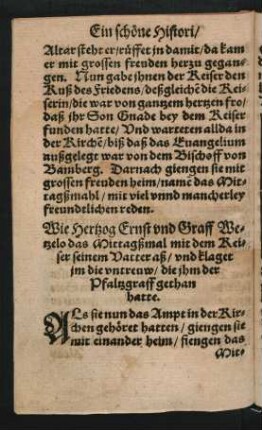 Ein schöne Histori/
Altar steht er/ rüffet in damit/ da kam
er mit grossen freuden herzu gegan-
gen. Nun gabe jhnen der Keiser den
Kuß des Friedens/ deßgleichẽ die Kei-
serin/ die war von gantzem hertzen fro/
daß jhr Son Gnade bey dem Keiser
funden hatte/ Vnd warteten allda in
der Kirchẽ/ biß daß das Euangelium
außgelegt war von dem Bischoff von
Bamberg. Darnach giengen sie mit
grossen freuden heim/ namẽ das Mit-
tagßmahl/ mit viel vnnd mancherley
freundtlichen reden.
Wie Hertzog Ernst vnd Graff We-
tzelo das Mittagßmal mit dem Kei-
ser seinem Vatter aß/ vnd klaget
jm die vntreuw/ die jhm der
Pfaltzgraff gethan
hatte.
ALs sie nun das Ampt in der Kir-
chen gehöret hatten/ giengen sie
mit einander heim/ fiengen das
Mit-